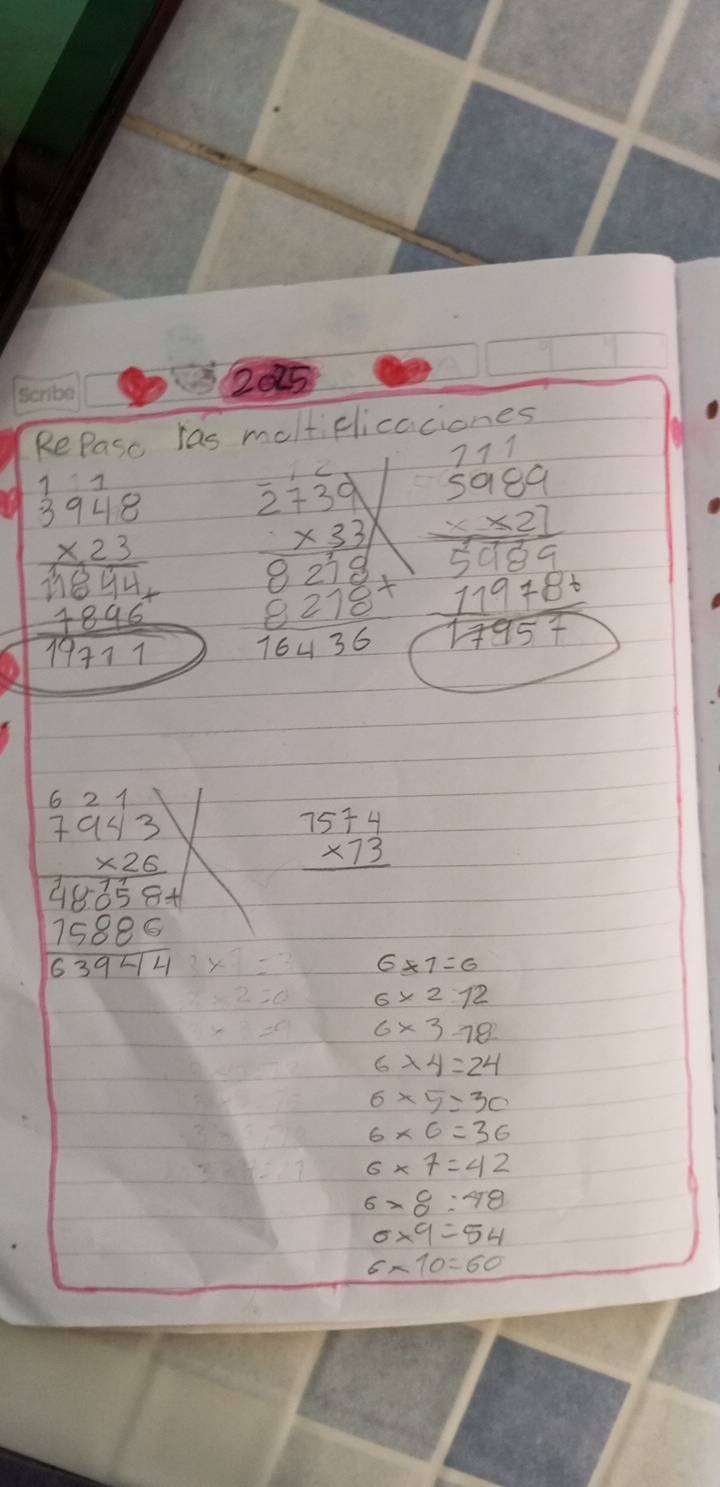 Scribe
2025
Repaso las moltiplicaciones
1 1 1
3948
x23
11844+
7896
19711
1 2
2739
x33
8218+
8218
16436
111
5989
x21
5989
11978+
17957
6 2 1
7943
x26
48058+
15886
63944
7574
x13
6x1=6
6x2=12
6x3=18
6x4=24
6x5=30
6x6=36
6x7=42
6x8=48
6x9=54
6x10=60